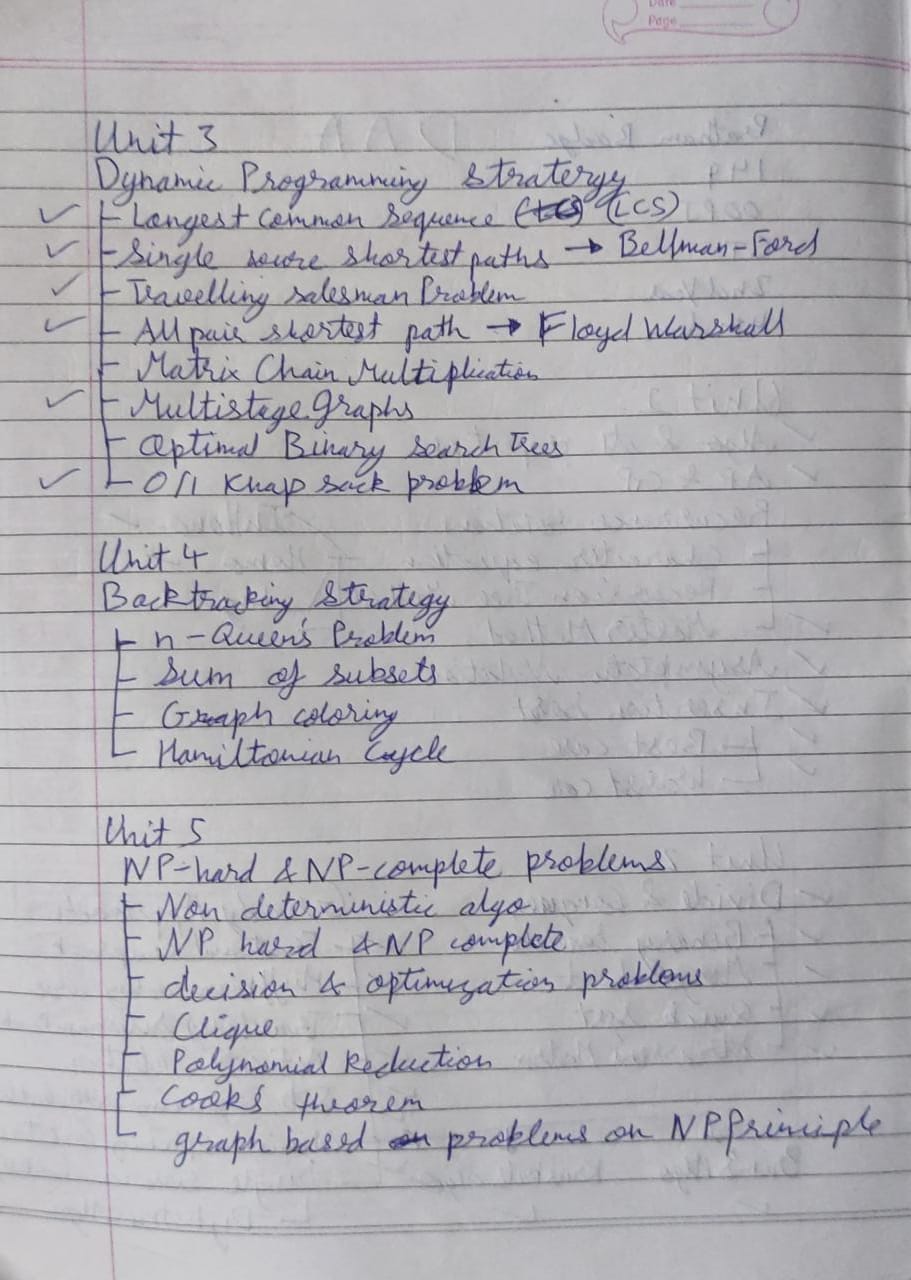 Date
Page
Unit 3
Dynamic Programming Stratergy
✓ Longest Common Sequence (LCS)
✓ Single soure shortest paths → Bellman-Ford
✓ Travelling salesman Problem
✓ All pair shortest path → Floyd Warshall
Matrix Chain Multiplication
✓ Multistage graphs
Optimal Binary Search Trees
✓ 0/1 Knap sack problem
Unit 4
Backtracking Strategy
n-Queen's Problem
Sum of subsets
Graph coloring
Hamiltonian Cycle
Unit 5
NP-hard & NP-complete problems
Non deterministic algo
NP hard & NP complete
decision & optimization problems
Clique
Polynomial Reduction
Cook's theorem
graph based problems on NP Principle